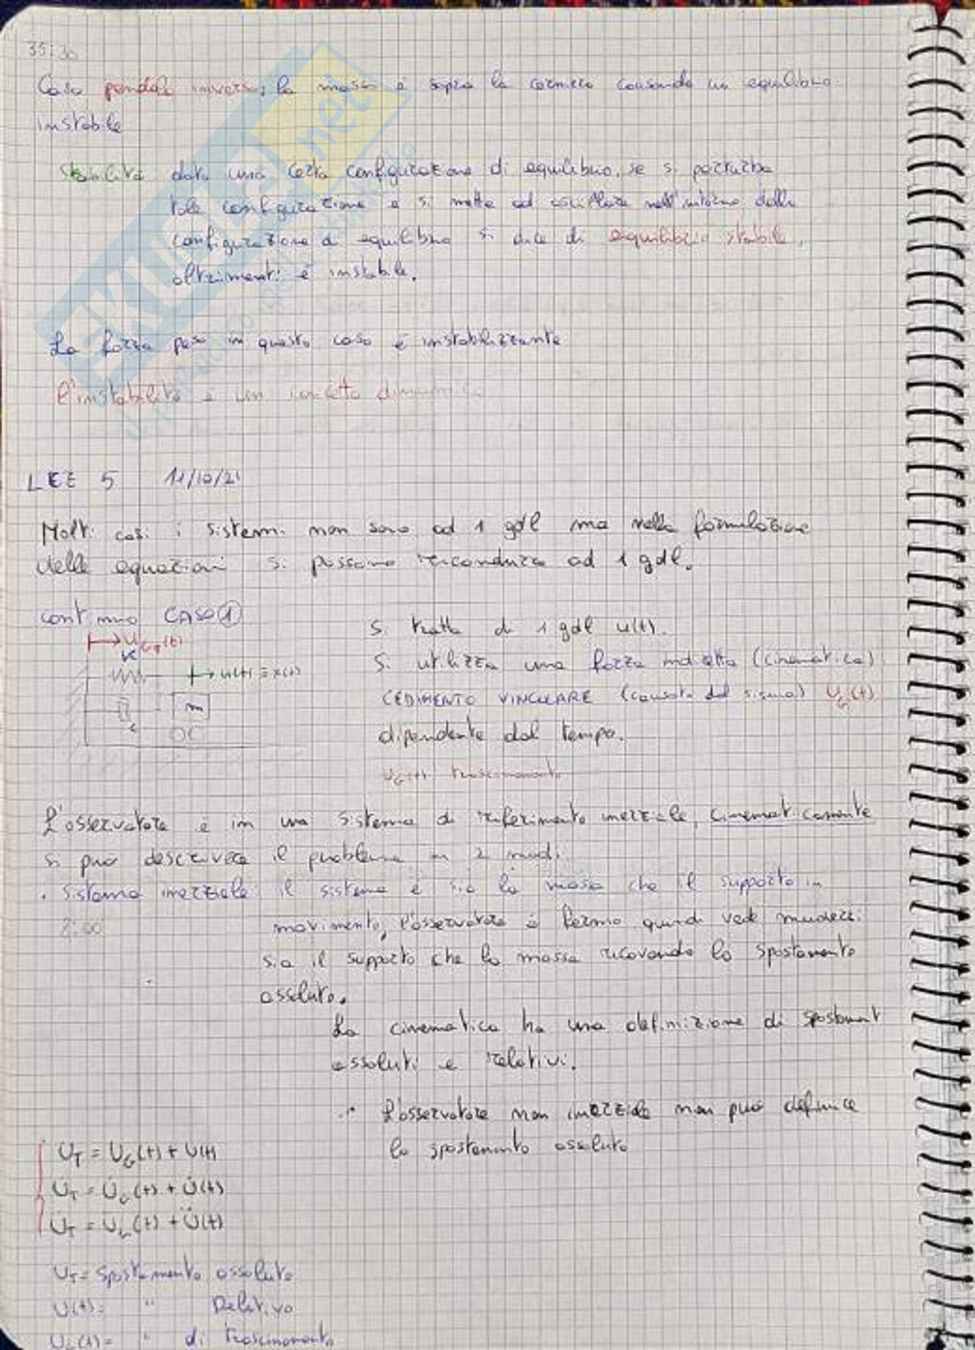 35:30
Caso pendolo inverso; la massa è sopra la cerniera causando un equilibrio
instabile
Stabilità: data una certa configurazione di equilibrio, se si perturba
tale configurazione e si mette ad oscillare nell'intorno della
configurazione di equilibrio si dice di equilibrio stabile,
altrimenti è instabile.
La forza peso in questo caso è instabilizzante
L'instabilità è un concetto dinamico
LEZ 5 11/10/21
Molti casi i sistemi non sono ad 1 gdl ma nella formulazione
delle equazioni si possono ricondurre ad 1 gdl.
continuo CASO 1
UG(t)
K
u(t) ≡ x(t)
m
c
Si tratta di 1 gdl u(t).
Si utilizza una forza indiretta (cinematica)
CEDIMENTO VINCOLARE (causato dal sisma) UG(t)
dipendente dal tempo.
UG(t) trascinamento
L'osservatore è in un sistema di riferimento inerziale, cinematicamente
si può descrivere il problema in 2 modi:
. sistema inerziale: il sistema è sia la massa che il supporto in
2:00
movimento, l'osservatore è fermo quindi vede muoversi
sia il supporto che la massa ricavando lo spostamento
assoluto.
La cinematica ha una definizione di spostament
assoluti e relativi.
L'osservatore non inerziale non può definire
lo spostamento assoluto
UT = UG(t) + U(t)
U̇T = U̇G(t) + U̇(t)
ÜT = ÜG(t) + Ü(t)
UT = spostamento assoluto
U(t) = " Relativo
UG(t) = " di trascinamento